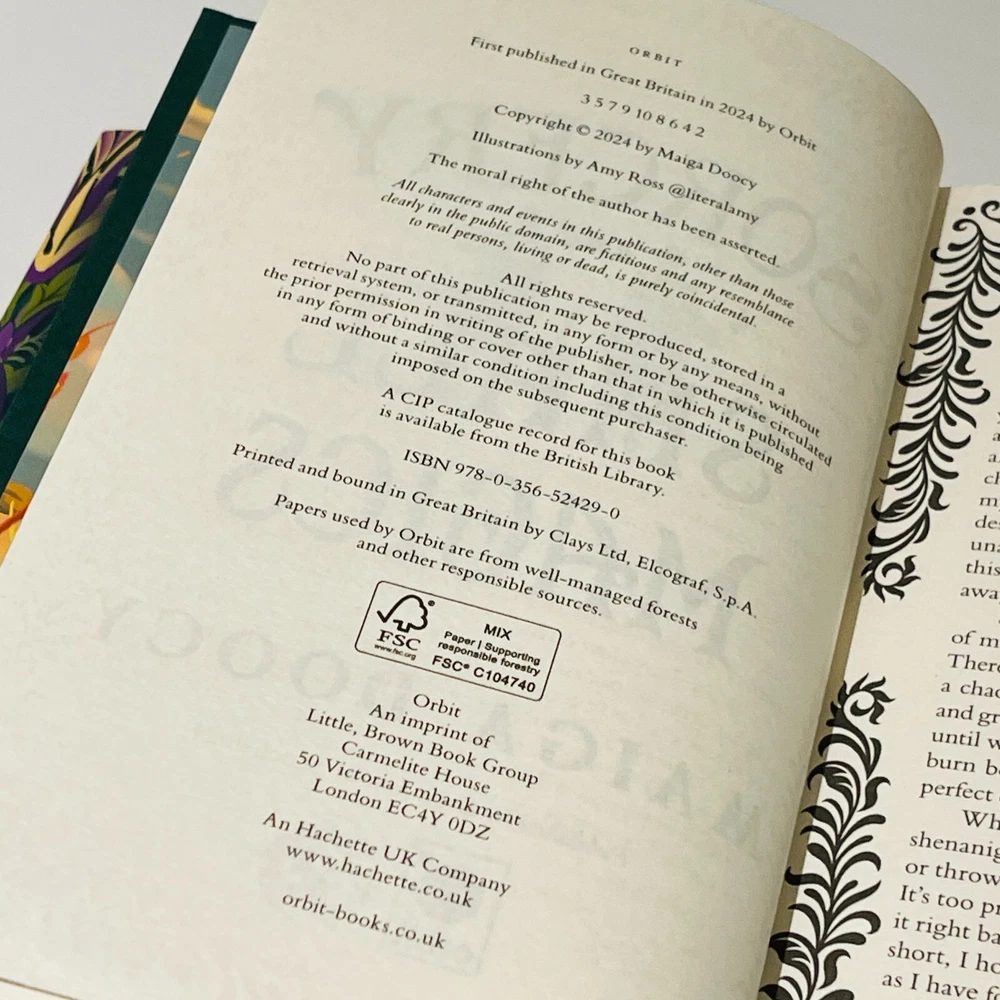 ORBIT
First published in Great Britain in 2024 by Orbit
3 5 7 9 10 8 6 4 2
Copyright © 2024 by Maiga Doocy
Illustrations by Amy Ross @literalamy
The moral right of the author has been asserted.
All characters and events in this publication, other than those
clearly in the public domain, are fictitious and any resemblance
to real persons, living or dead, is purely coincidental.
All rights reserved.
No part of this publication may be reproduced, stored in a
retrieval system, or transmitted, in any form or by any means, without
the prior permission in writing of the publisher, nor be otherwise circulated
in any form of binding or cover other than that in which it is published
and without a similar condition including this condition being
imposed on the subsequent purchaser.
A CIP catalogue record for this book
is available from the British Library.
ISBN 978-0-356-52429-0
Printed and bound in Great Britain by Clays Ltd, Elcograf, S.p.A.
Papers used by Orbit are from well-managed forests
and other responsible sources.
FSC
www.fsc.org
MIX
Paper | Supporting
responsible forestry
FSC® C104740
Orbit
An imprint of
Little, Brown Book Group
Carmelite House
50 Victoria Embankment
London EC4Y 0DZ
An Hachette UK Company
www.hachette.co.uk
orbit-books.co.uk
this
of m
a chao
and gr
until w
burn be
perfect
Wh
shenanig
or throw
It's too pr
it right ba
short, I ho
as I have f